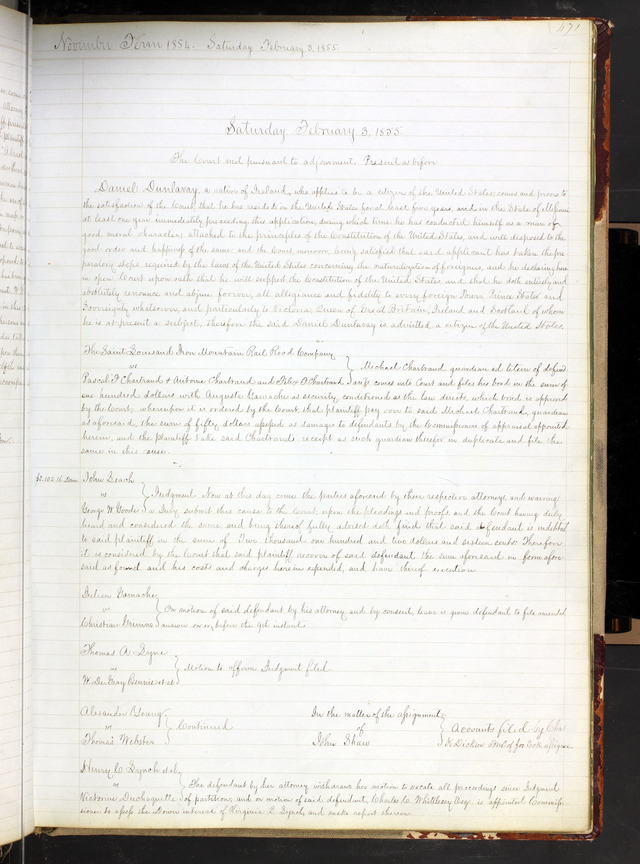 471
November Term 1854. Saturday February 3, 1855.
Saturday February 3, 1855
The Court met pursuant to adjournment. Present as before
Daniel Dunlavay, a native of Ireland, who applies to be a citizen of the United States; comes and proves to
the satisfaction of the Court, that he has resided in the United States for at least five years, and in the State of Missouri
at least one year immediately preceding this application, during which time he has conducted himself as a man of
good moral character, attached to the principles of the Constitution of the United States, and well disposed to the
good order and happiness of the same and the Court moreover being satisfied that said applicant has taken the pre-
paratory steps required by the laws of the United States concerning the naturalization of foreigners, and he declaring here
in open Court upon oath that he will support the Constitution of the United States, and that he doth entirely and
absolutely renounce and abjure forever, all allegiance and fidelity to every foreign Power, Prince State and
Sovereignty whatsoever, and particularly to Victoria, Queen of Great Britain, Ireland and Scotland of whom
he is at present a subject, therefore the said Daniel Dunlavay is admitted a citizen of the United States.
The Saint Louis and Iron Mountain Rail Road Company
vs
Michael Chartrand guardian ad litem of
Pascal P Chartrand & Antoine Chartrand and Chartrand comes into Court and files his bond in the sum of
one hundred dollars with Auguste Gamache as security, conditioned as the law directs, which bond is approved
by the Court; whereupon it is ordered by the Court that plaintiff pay over to said Michael Chartrand, guardian
as aforesaid, the sum of fifty dollars assessed as damages to defendants by the Commissioners of appraisal appointed
herein, and the plaintiff take said Chartrand's receipt as such guardian therefor in duplicate and file the
same in this cause.
$2.102.16
John Leach
vs
Judgment Now at this day come the parties aforesaid by their respective attorneys and waiving
George W Goode
a Jury submit this cause to the Court upon the pleadings and proofs, and the Court having duly
heard and considered the same and being thereof fully advised doth find that said defendant is indebted
to said plaintiff in the sum of Two thousand one hundred and two dollars and sixteen cents: Therefore
it is considered by the Court that said plaintiff recover of said defendant the sum aforesaid in form afore-
said as found, and his costs and charges herein expended, and have thereof execution
Gamache
vs
On motion of said defendant by his attorney and by consent, leave is given defendant to file amended
Christian
answer on or before the 9th instant.
Thomas A
vs
Motion to affirm Judgment filed
W. De Gray Bennie et al
Alexander Young
vs
Continued
Thomas Webster
In the matter of the assignment
of
John Shaw
Accounts filed by Chas
H Dickson
Henry C Lynch
vs
The defendant by her attorney withdraws her motion to vacate all proceedings since Judgment
Victorine Duchouquette
of partition; and on motion of said defendant, Charles C. Whittlesey Esq. is appointed Commis-
sioner to assess the dower interest of Virginia Lynch, and make report thereon